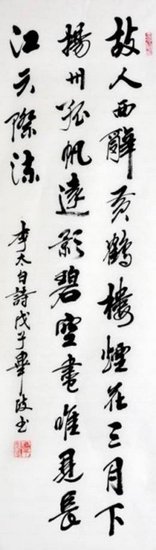 故人西辭黃鶴樓煙花三月下
揚州孤帆遠影碧空盡唯見長
江天際流
李太白詩戊子書